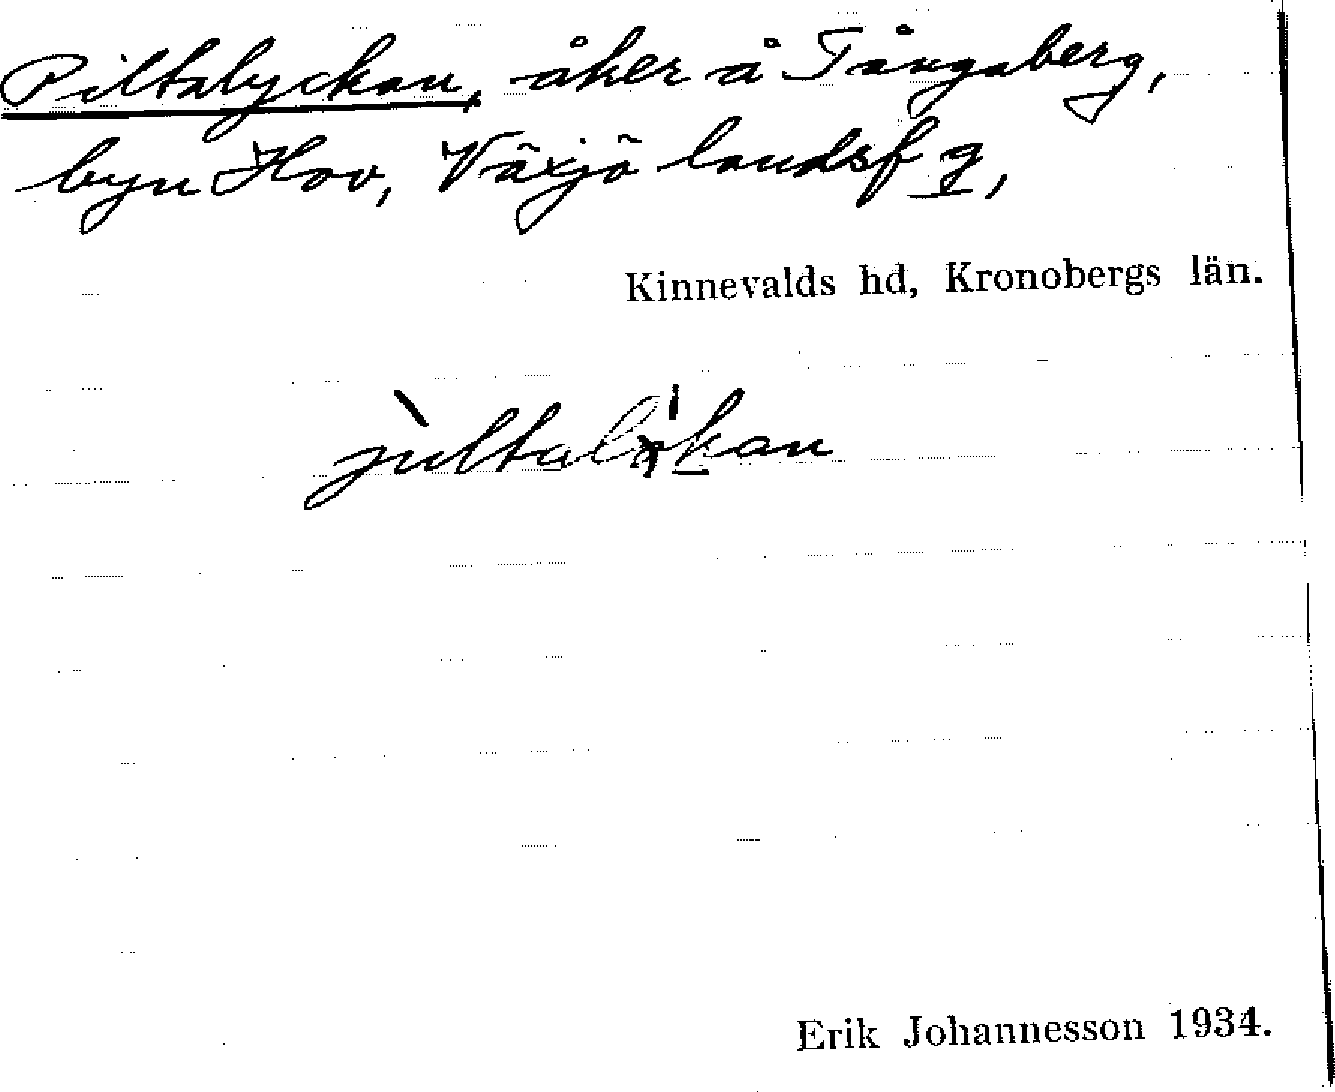 Piltalyckan, åker å Tångaberg,
byn Hov, Växjö landsf g,
Kinnevalds hd, Kronobergs län.
Erik Johannesson 1934.